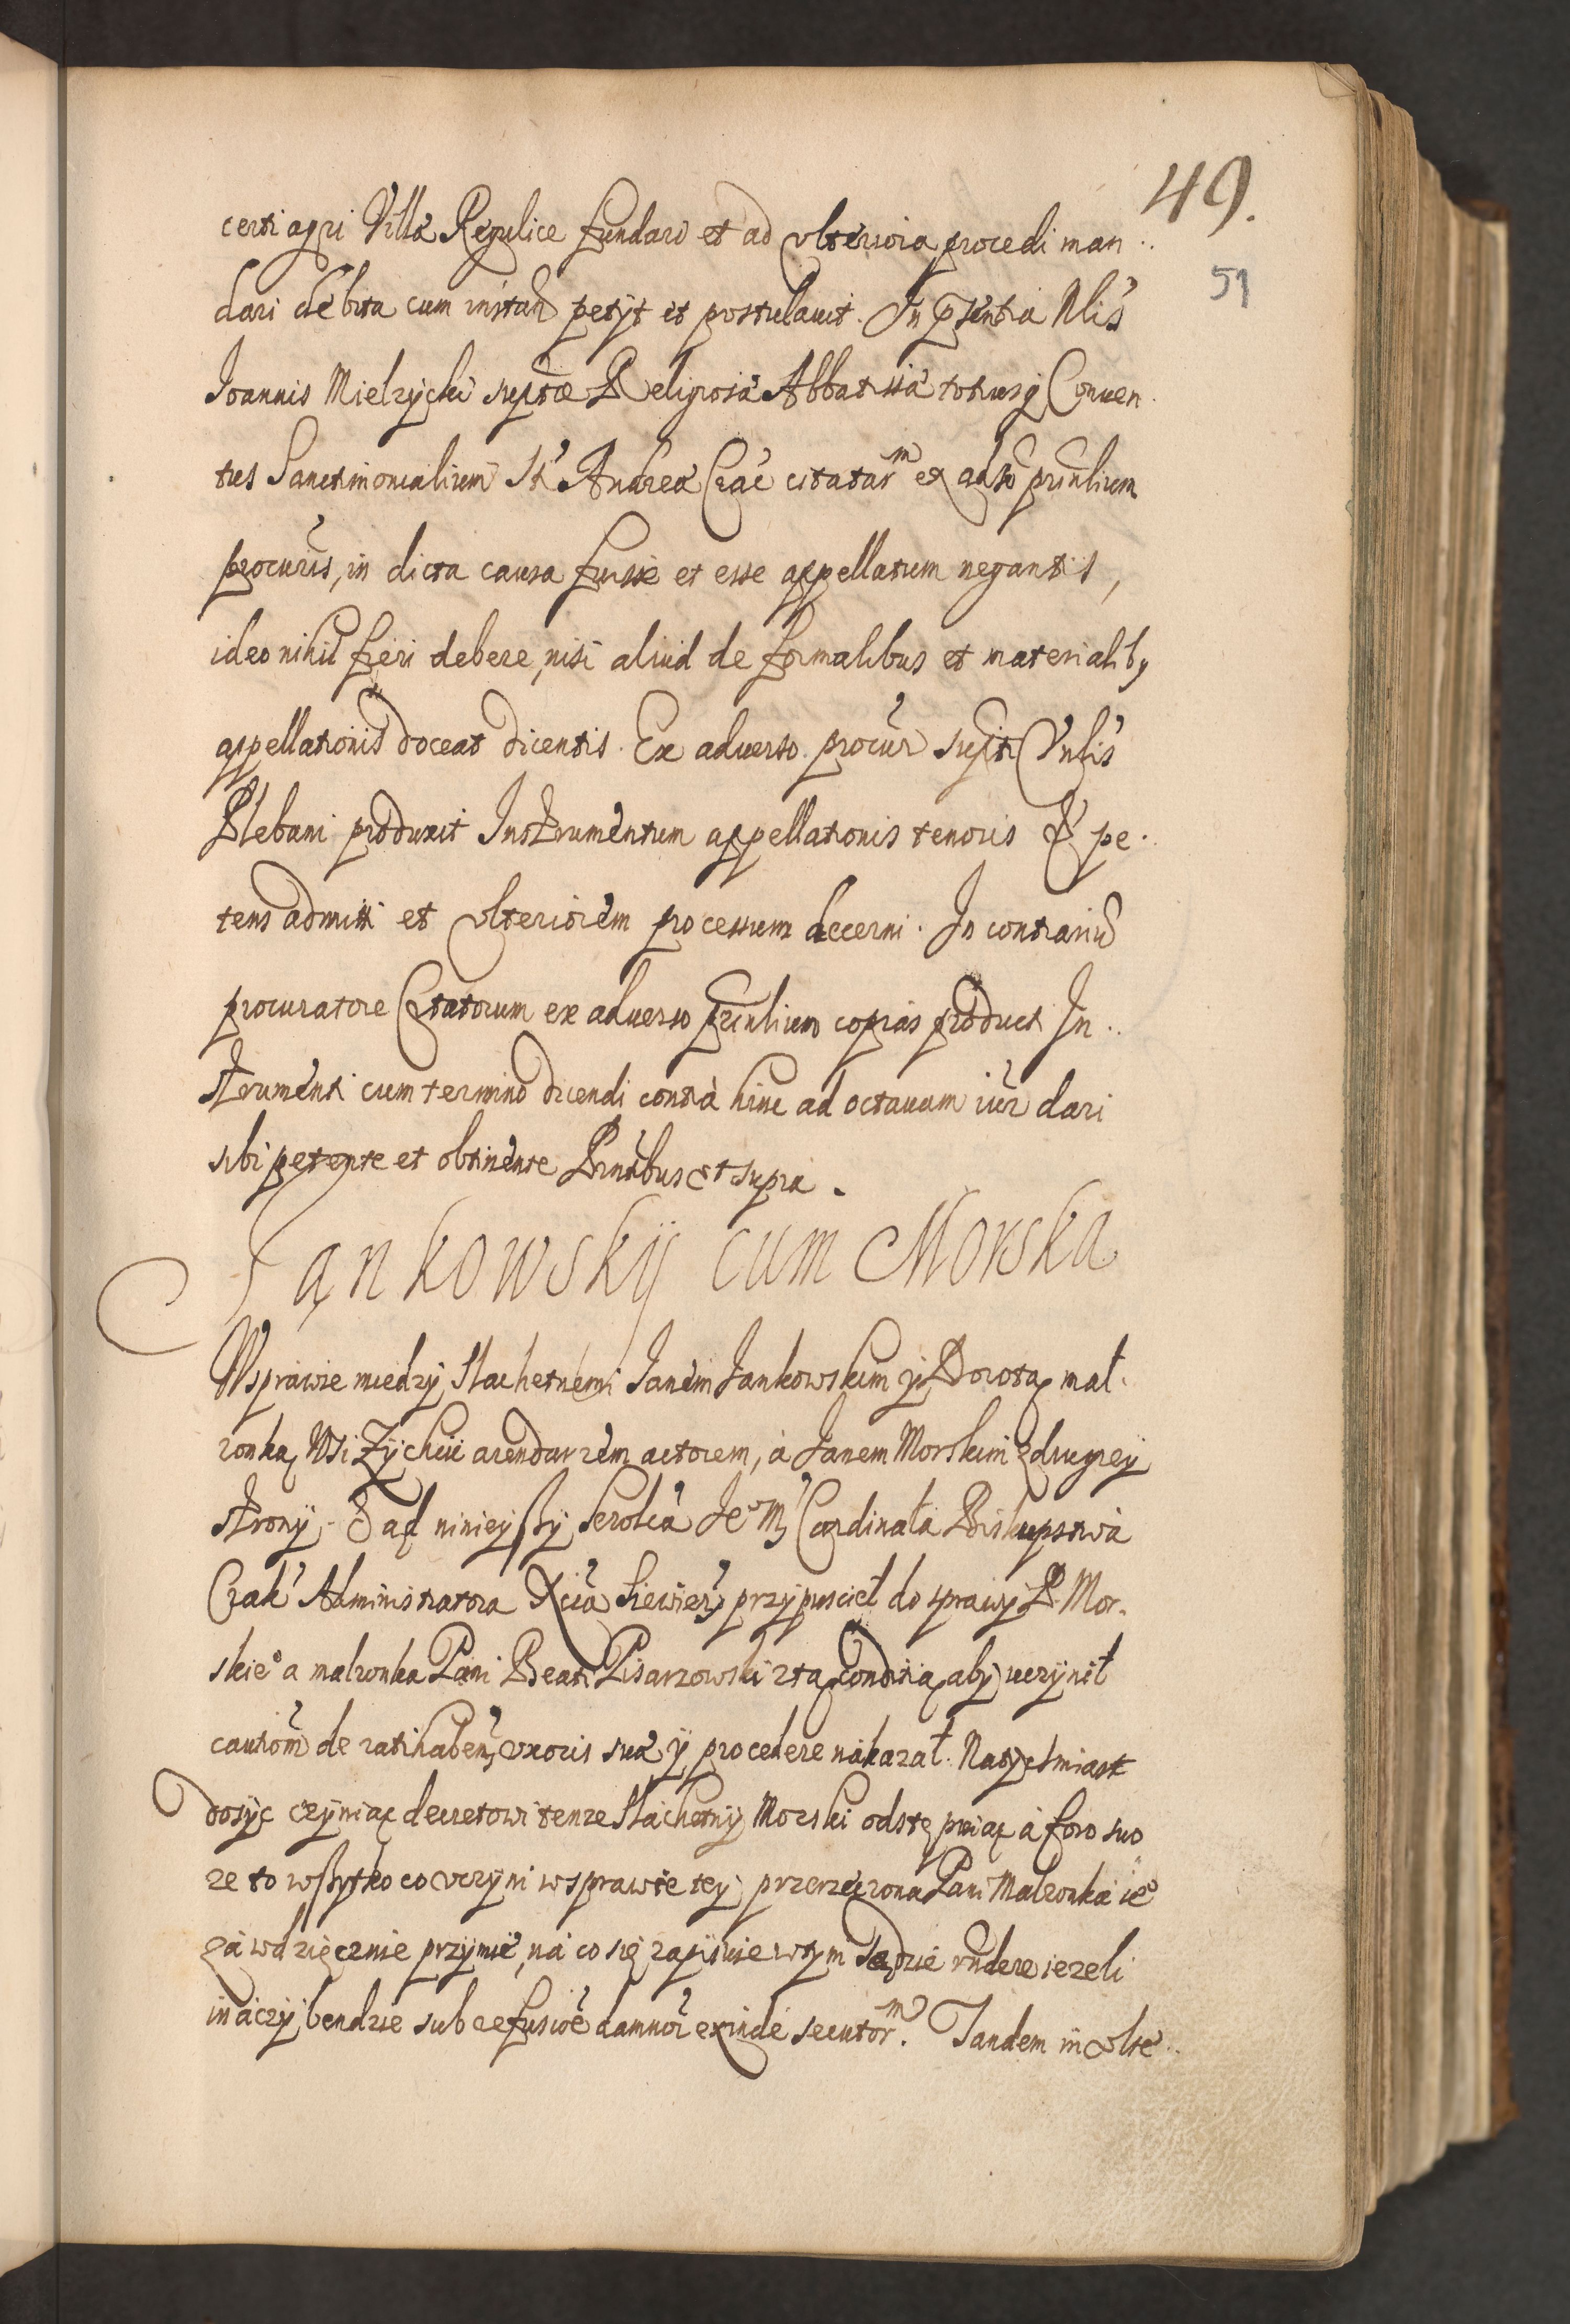 49.
51
certi agri Villæ Regulice fundari et ad vlteriora procedi man..
dari debita cum instan petijt et postulauit. In pñtia Nlis
Joannis Mielzycki suptæ Religiosæ Abbatissæ totiusq Conuen.
tus Sanctimonialium Sti Andreæ Crac citatarm ex adso prinlium
procuris, in dicta causa fuisse et esse appellatum negantis,
ideo nihil fieri debere, nisi aliud de formalibus et materialibq
appellationis doceat dicentis. Ex aduerso procur supti Vnlis
Plebani produxit Instrumentum appellationis tenoris & pe.
tens admitti et vlteriorem processum decerni. In contrariu
procuratore Citatorum ex aduerso prinlium copias product In..
strumenti cum termino dicendi contrà hinc ad octauam iur dari
sibi petente et obtinente Pñtibus vt supra.
Jąnkowskÿ cum Morska
W sprawie miedzÿ Slachetnemi Janem Jankowskim ÿ Dorotą mał.
zonką Wsi Zÿchcic arendarzem actorem, à Janem Morskim z drugieÿ
stronÿ. Sąd ninieÿßÿ Serolca Jeo M Cardinała Biskupstwa
Crak Administratora Xcia Siewier przÿpuscieł do sprawÿ P. Mor.
skieo a malzonka Pani Beati Pisarzowski z tą conditią abÿ vczÿnił
cautiom de ratihaben vxoris suæ ÿ procedere nakazał. Natÿchmiast
dosÿc czÿniąc decretowi tenze Slachetnÿ Morski odstępuiąc à foro suo
ze to wßÿtko co vczÿni w sprawie teÿ przerzeczona Pani Malzonka ieo
za wdzięcznie przÿmie, na co się zapisuie w tÿm sądzie rñdere iezeli
inaczÿ bendzie sub refusioe damnor exinde secutorm. Tandem in vlte..